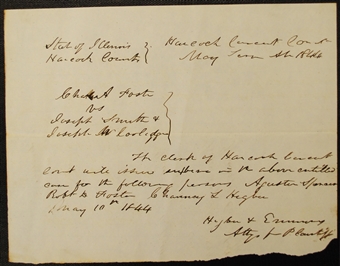 State of Illinois } Hancock Circuit Court
Hancock County } May Term AD 1844
Charles A Foster
vs
Joseph Smith &
Joseph W Coolidge
The clerk of Hancock Circuit
court will issue subpoena in the above entitled
case for the following persons Augustine Spencer
Robt D Foster Chauncey L Higbee
May 10th 1844
Higbee & Emmons
Attys for Plantiff